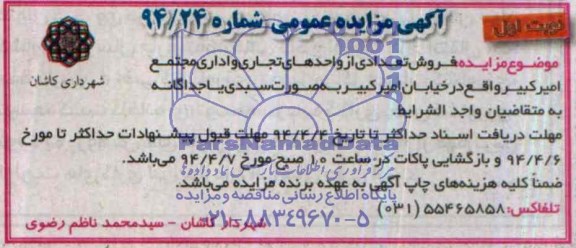 نوبت اول
آگهی مزایده عمومی شماره ۹۴/۲۴
شهرداری کاشان
موضوع مزایده: فروش تعدادی از واحدهای تجاری و اداری مجتمع
امیرکبیر واقع در خیابان امیرکبیر به صورت سبدی یا جداگانه
به متقاضیان واجد الشرایط.
مهلت دریافت اسناد حداکثر تا تاریخ ۹۴/۴/۴ مهلت قبول پیشنهادات حداکثر تا مورخ
۹۴/۴/۶ و بازگشایی پاکات در ساعت ۱۰ صبح مورخ ۹۴/۴/۷ می‌باشد.
ضمناً کلیه هزینه‌های چاپ آگهی به عهده برنده مزایده می‌باشد.
تلفاکس: ۵۵۴۶۵۸۵۸ (۰۳۱)
شهردار کاشان - سیدمحمد ناظم رضوی
ParsNamadData
پایگاه اطلاع رسانی مناقصه و مزایده
۰۲۱-۸۸۳۴۹۶۷۰-۵